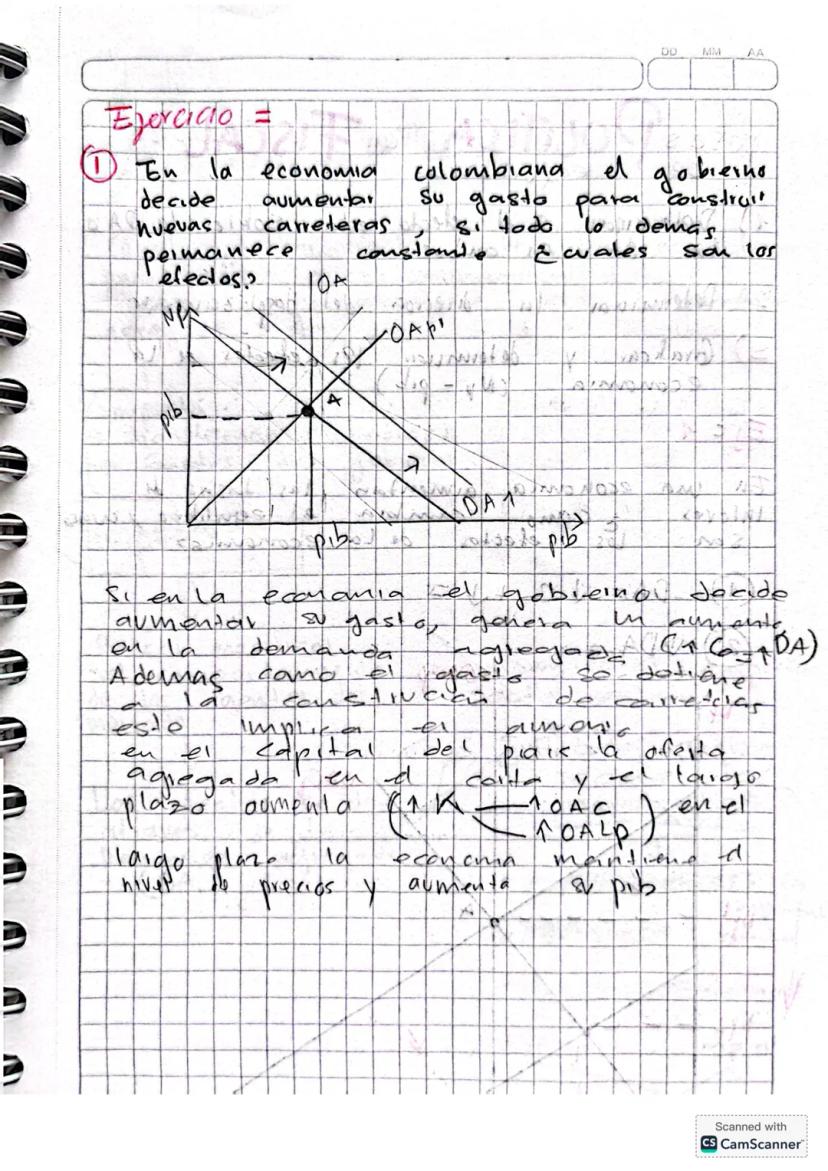 DD MM AA
Ejercicio =
① En la economia colombiana el gobierno
decide aumentar su gasto para construir
nuevas carreteras, si todo lo demas
permanece constante ¿cuales son los
efectos?
OA
NP
OAp'
pib
A
DA↑
pib pib
Si en la economia el gobierno decide
aumentar su gasto, genera un aumento
en la demanda agregada (C↑ Co=↑DA)
Ademas como el gasto se
a la construcian de carreteras
esto implica el
en el capital del la oferta
agregada en el corto y el largo
plazo aumenta (↑K ↑OAC) en el
↑OALp
largo plazo la economia mantiene el
nivel de precios y aumenta su pib
Scanned with
CS CamScanner